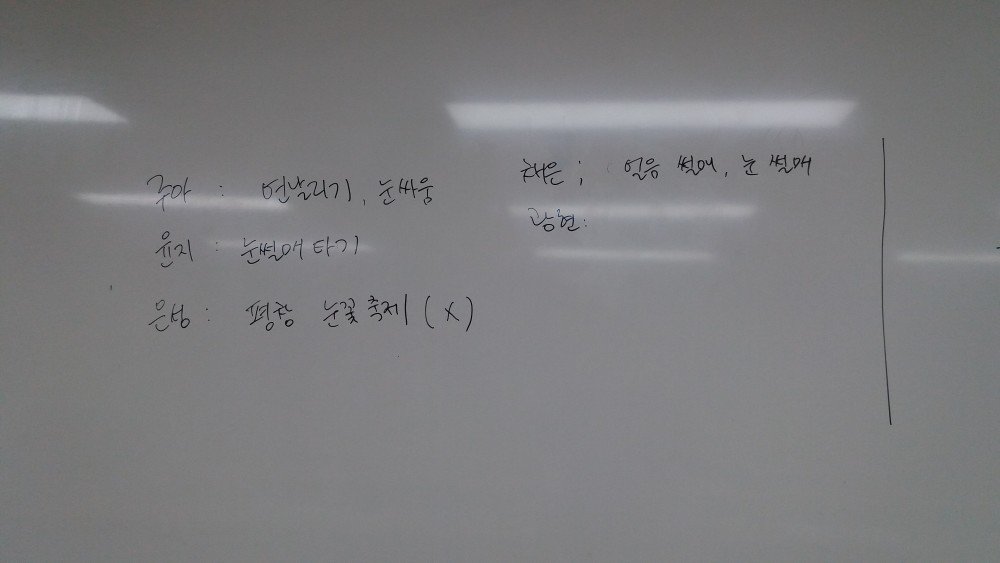 주아 : 연날리기, 눈싸움
윤지 : 눈썰매 타기
은성 : 평창 눈꽃축제 (X)
채은 ; 얼음 썰매, 눈 썰매
광현 :